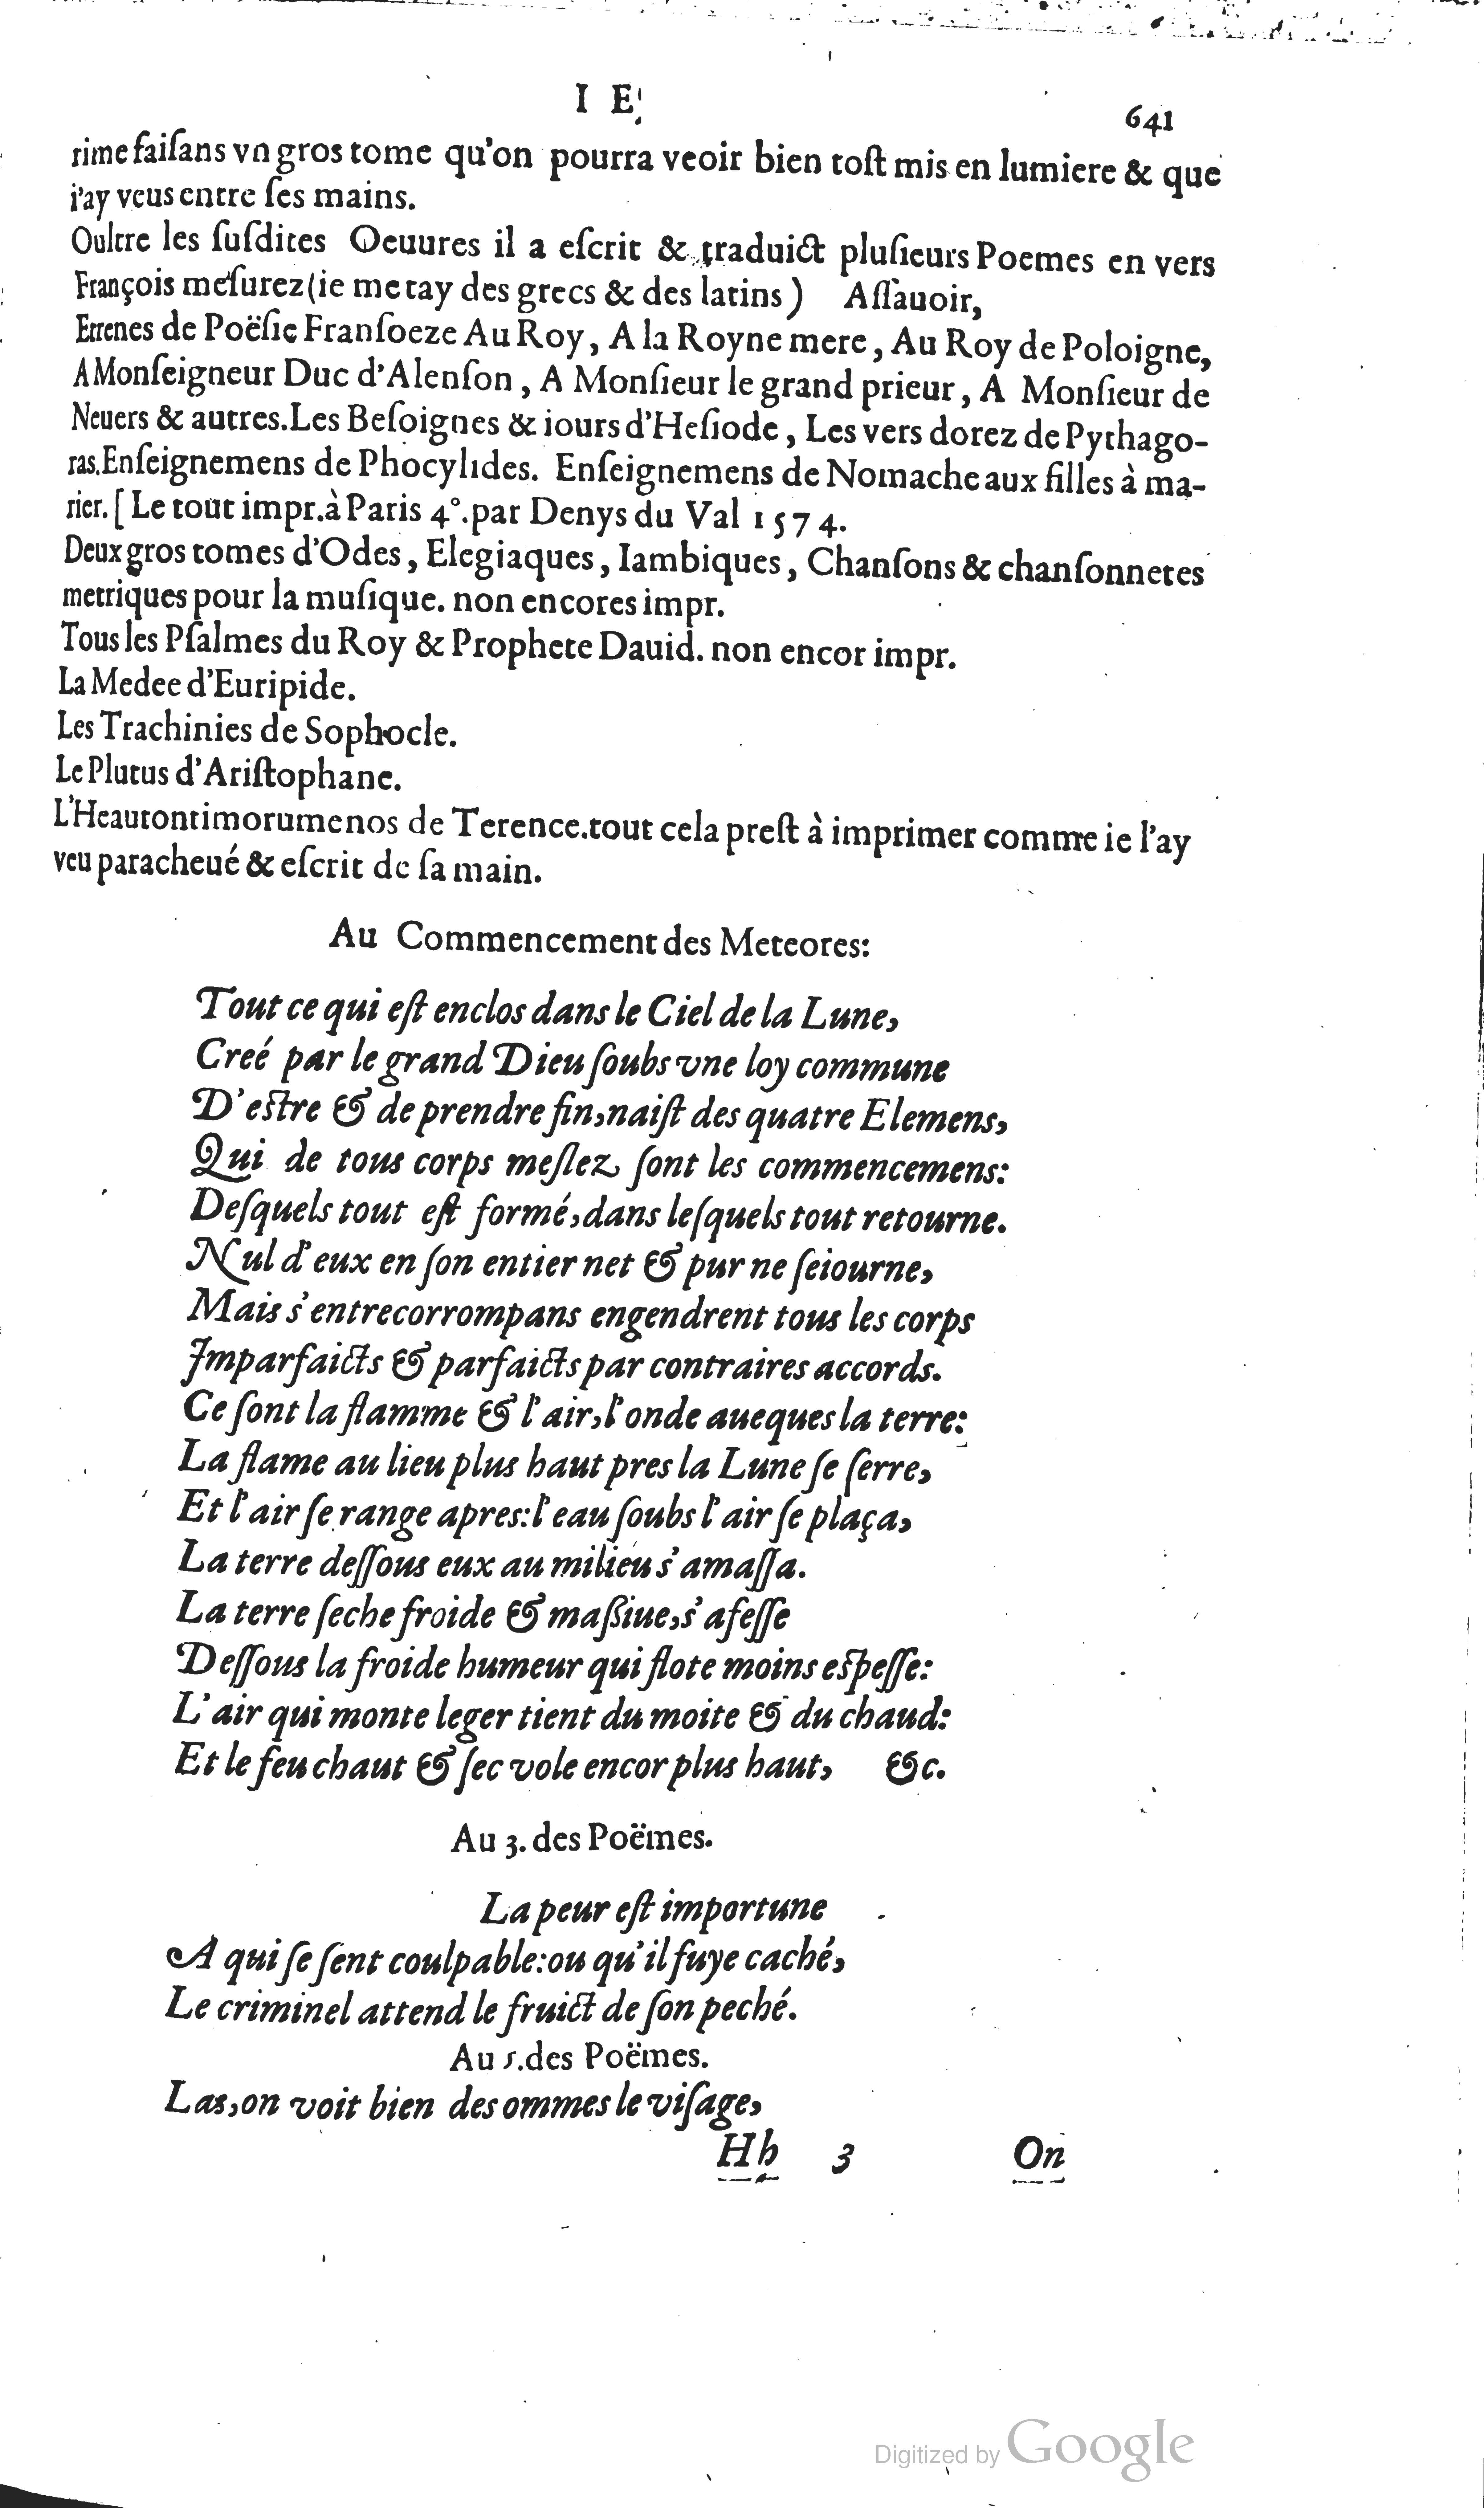 I E
641
rime faiſans vn gros tome qu'on pourra veoir bien toſt mis en lumiere & que
i'ay veus entre ſes mains.
Oultre les ſuſdites Oeuures il a eſcrit & traduict pluſieurs Poemes en vers
François meſurez (ie me tay des grecs & des latins) Aſſauoir,
Etrenes de Poëſie Franſoeze Au Roy, A la Royne mere, Au Roy de Poloigne,
A Monſeigneur Duc d'Alenſon, A Monſieur le grand prieur, A Monſieur de
Neuers & autres. Les Beſoignes & iours d'Heſiode, Les vers dorez de Pythago-
ras. Enſeignemens de Phocylides. Enſeignemens de Nomache aux filles à ma-
rier. [Le tout impr. à Paris 4°. par Denys du Val 1574.
Deux gros tomes d'Odes, Elegiaques, Iambiques, Chanſons & chanſonnetes
metriques pour la muſique. non encores impr.
Tous les Pſalmes du Roy & Prophete Dauid. non encor impr.
La Medee d'Euripide.
Les Trachinies de Sophocle.
Le Plutus d'Ariſtophane.
L'Heautontimorumenos de Terence. tout cela preſt à imprimer comme ie l'ay
veu paracheué & eſcrit de ſa main.
Au Commencement des Meteores:
Tout ce qui eſt enclos dans le Ciel de la Lune,
Creé par le grand Dieu ſoubs vne loy commune
D'eſtre & de prendre fin, naiſt des quatre Elemens,
Qui de tous corps meſlez ſont les commencemens:
Deſquels tout eſt formé, dans leſquels tout retourne.
Nul d'eux en ſon entier net & pur ne ſeiourne,
Mais s'entrecorrompans engendrent tous les corps
Imparfaicts & parfaicts par contraires accords.
Ce ſont la flamme & l'air, l'onde aueques la terre:
La flame au lieu plus haut pres la Lune ſe ſerre,
Et l'air ſe range apres: l'eau ſoubs l'air ſe plaça,
La terre deſſous eux au milieu s'amaſſa.
La terre ſeche froide & maßiue, s'afeſſe
Deſſous la froide humeur qui flote moins eſpeſſe:
L'air qui monte leger tient du moite & du chaud:
Et le feu chaut & ſec vole encor plus haut, &c.
Au 3. des Poëmes.
La peur eſt importune
A qui ſe ſent coulpable: ou qu'il fuye caché,
Le criminel attend le fruict de ſon peché.
Au 5. des Poëmes.
Las, on voit bien des ommes le viſage,
Hh 3 On
Digitized by Google